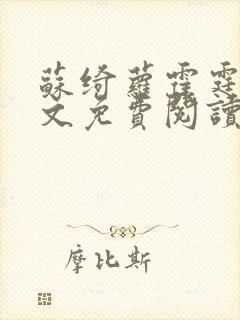 蘇綺蘿霆霆
文免費閱讀
摩比斯